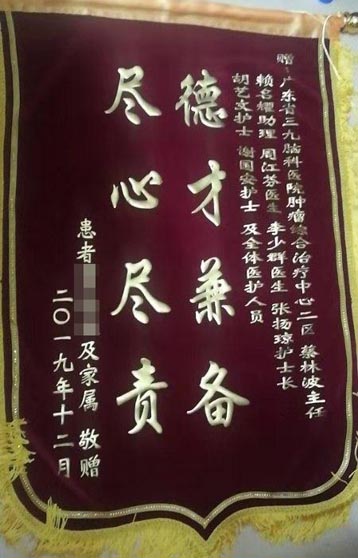 赠:广东省三九脑科医院肿瘤综合治疗中心二区 蔡林波主任
赖名耀助理 周江芬医生 李少群医生 张扬琼护士长
胡艺文护士 谢国安护士 及全体医护人员
德才兼备
尽心尽责
患者 及家属 敬赠
二〇一九年十二月